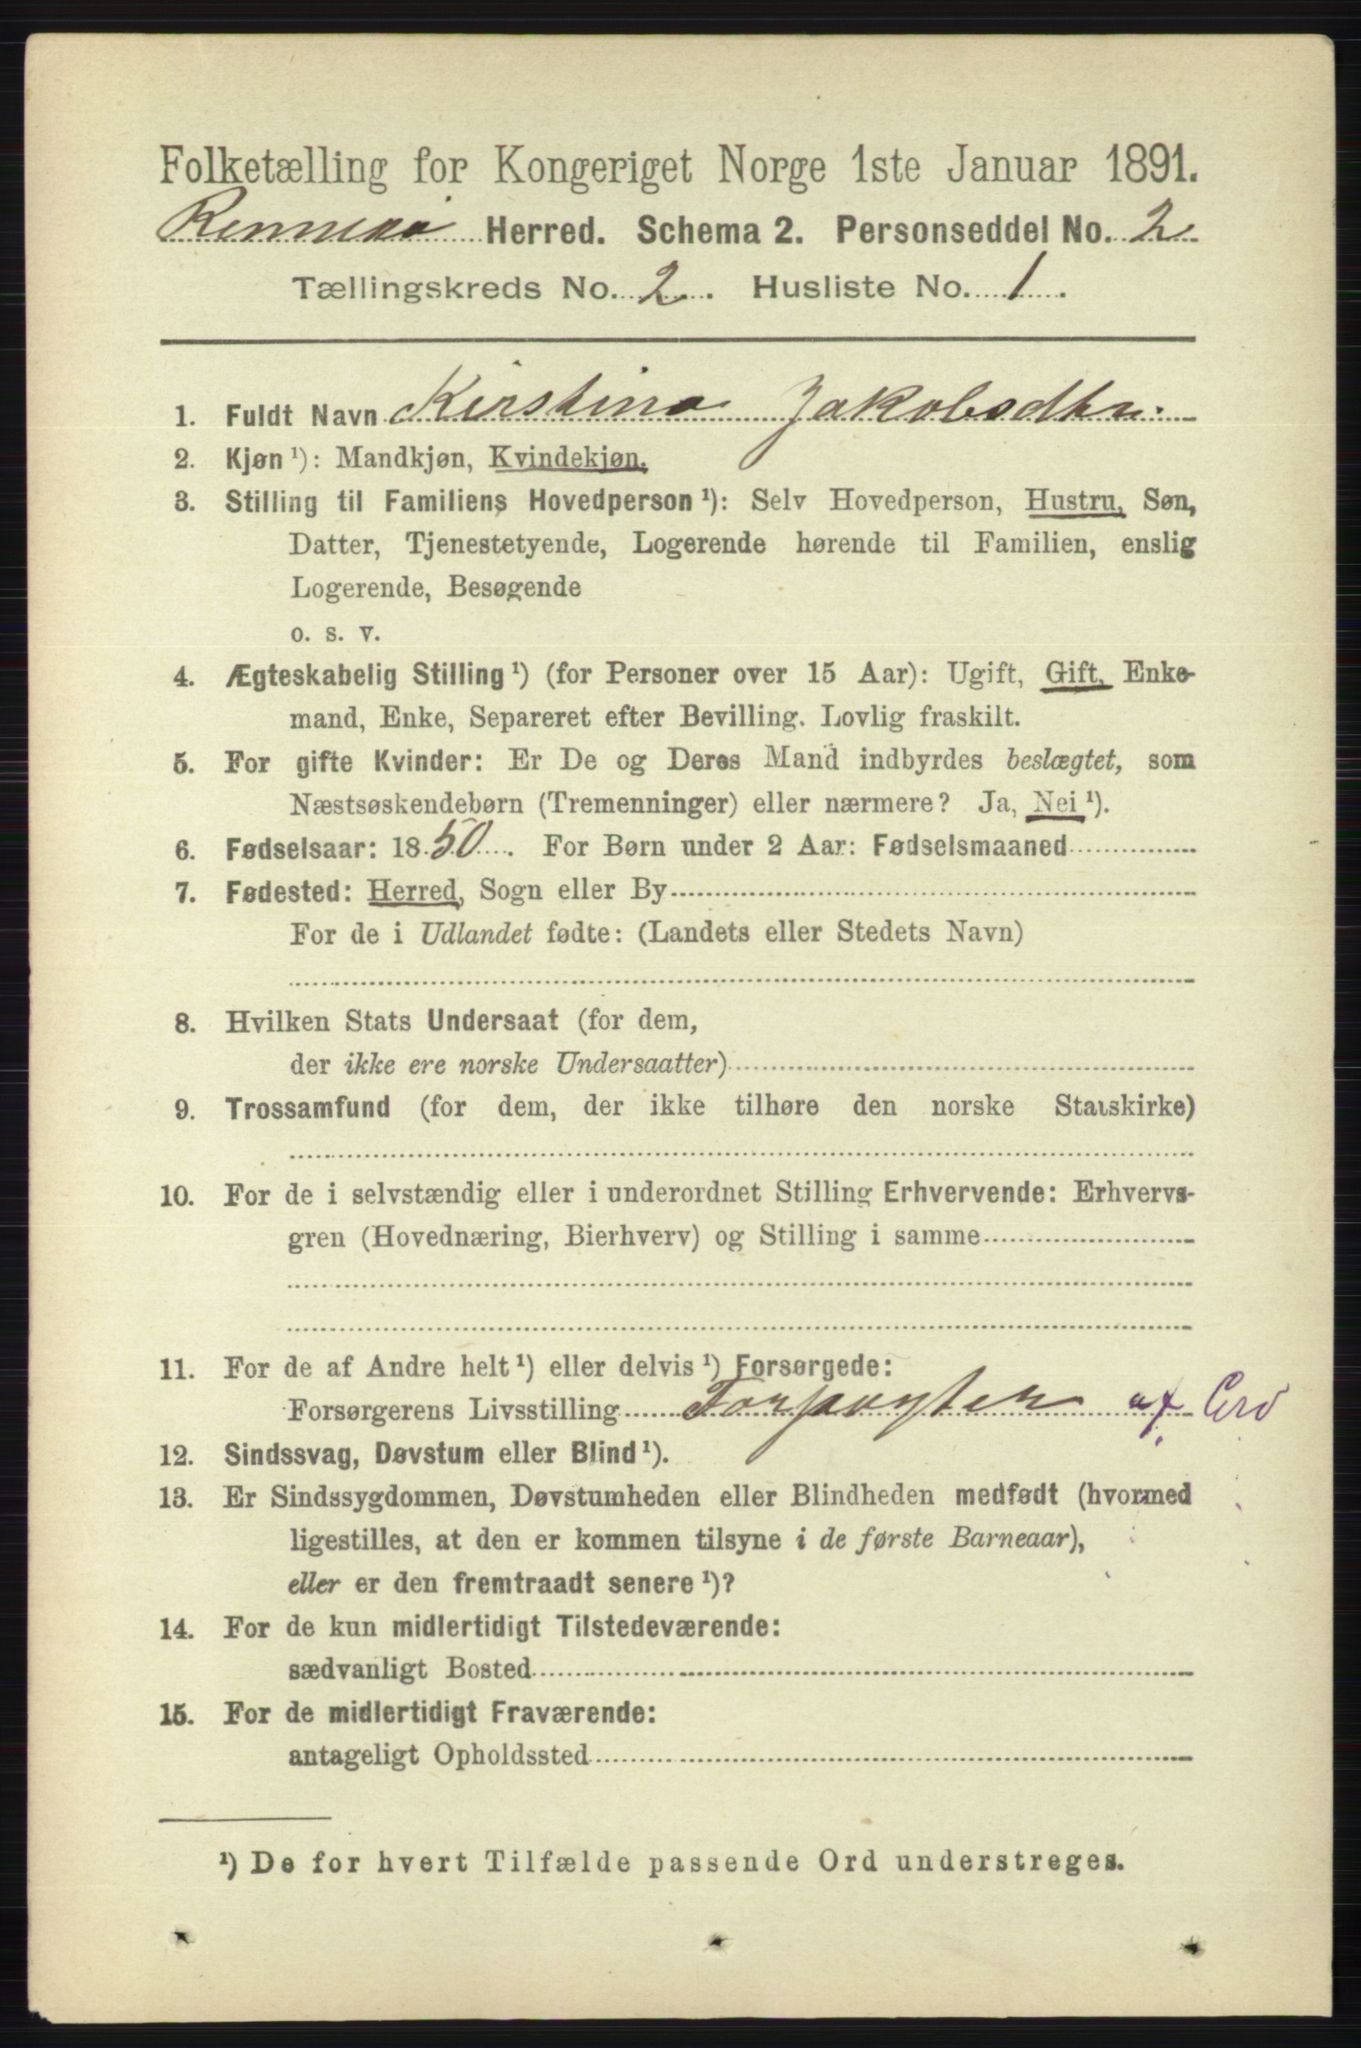 Folketælling for Kongeriget Norge 1ste Januar 1891.
Rennesø Herred. Schema 2. Personseddel No. 2
Tællingskreds No. 2. Husliste No. 1.
1. Fuldt Navn Kirstina Jakobsdtr.
2. Kjøn ¹): Mandkjøn, Kvindekjøn.
3. Stilling til Familiens Hovedperson ¹): Selv Hovedperson, Hustru, Søn,
Datter, Tjenestetyende, Logerende hørende til Familien, enslig
Logerende, Besøgende
o. s. v.
4. Ægteskabelig Stilling ¹) (for Personer over 15 Aar): Ugift, Gift, Enke-
mand, Enke, Separeret efter Bevilling. Lovlig fraskilt.
5. For gifte Kvinder: Er De og Deres Mand indbyrdes beslægtet, som
Næstsøskendebørn (Tremenninger) eller nærmere? Ja, Nei ¹).
6. Fødselsaar: 1850. For Børn under 2 Aar: Fødselsmaaned
7. Fødested: Herred, Sogn eller By
For de i Udlandet fødte: (Landets eller Stedets Navn)
8. Hvilken Stats Undersaat (for dem,
der ikke ere norske Undersaatter)
9. Trossamfund (for dem, der ikke tilhøre den norske Statskirke)
10. For de i selvstændig eller i underordnet Stilling Erhvervende: Erhvervs-
gren (Hovednæring, Bierhverv) og Stilling i samme
11. For de af Andre helt ¹) eller delvis ¹) Forsørgede:
Forsørgerens Livsstilling Forpagter af
12. Sindssvag, Døvstum eller Blind ¹).
13. Er Sindssygdommen, Døvstumheden eller Blindheden medfødt (hvormed
ligestilles, at den er kommen tilsyne i de første Barneaar),
eller er den fremtraadt senere ¹)?
14. For de kun midlertidigt Tilstedeværende:
sædvanligt Bosted
15. For de midlertidigt Fraværende:
antageligt Opholdssted
¹) De for hvert Tilfælde passende Ord understreges.